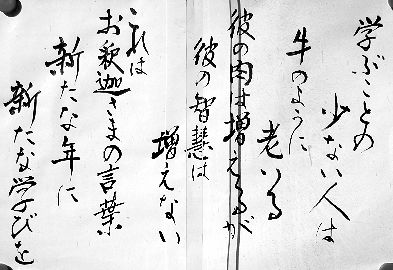 学ぶことの
少ない人は
牛のように
老いる
彼の肉は増えるが
彼の智慧は
増えない
これは
お釈迦さまの言葉
新たな年に
新たな学びを